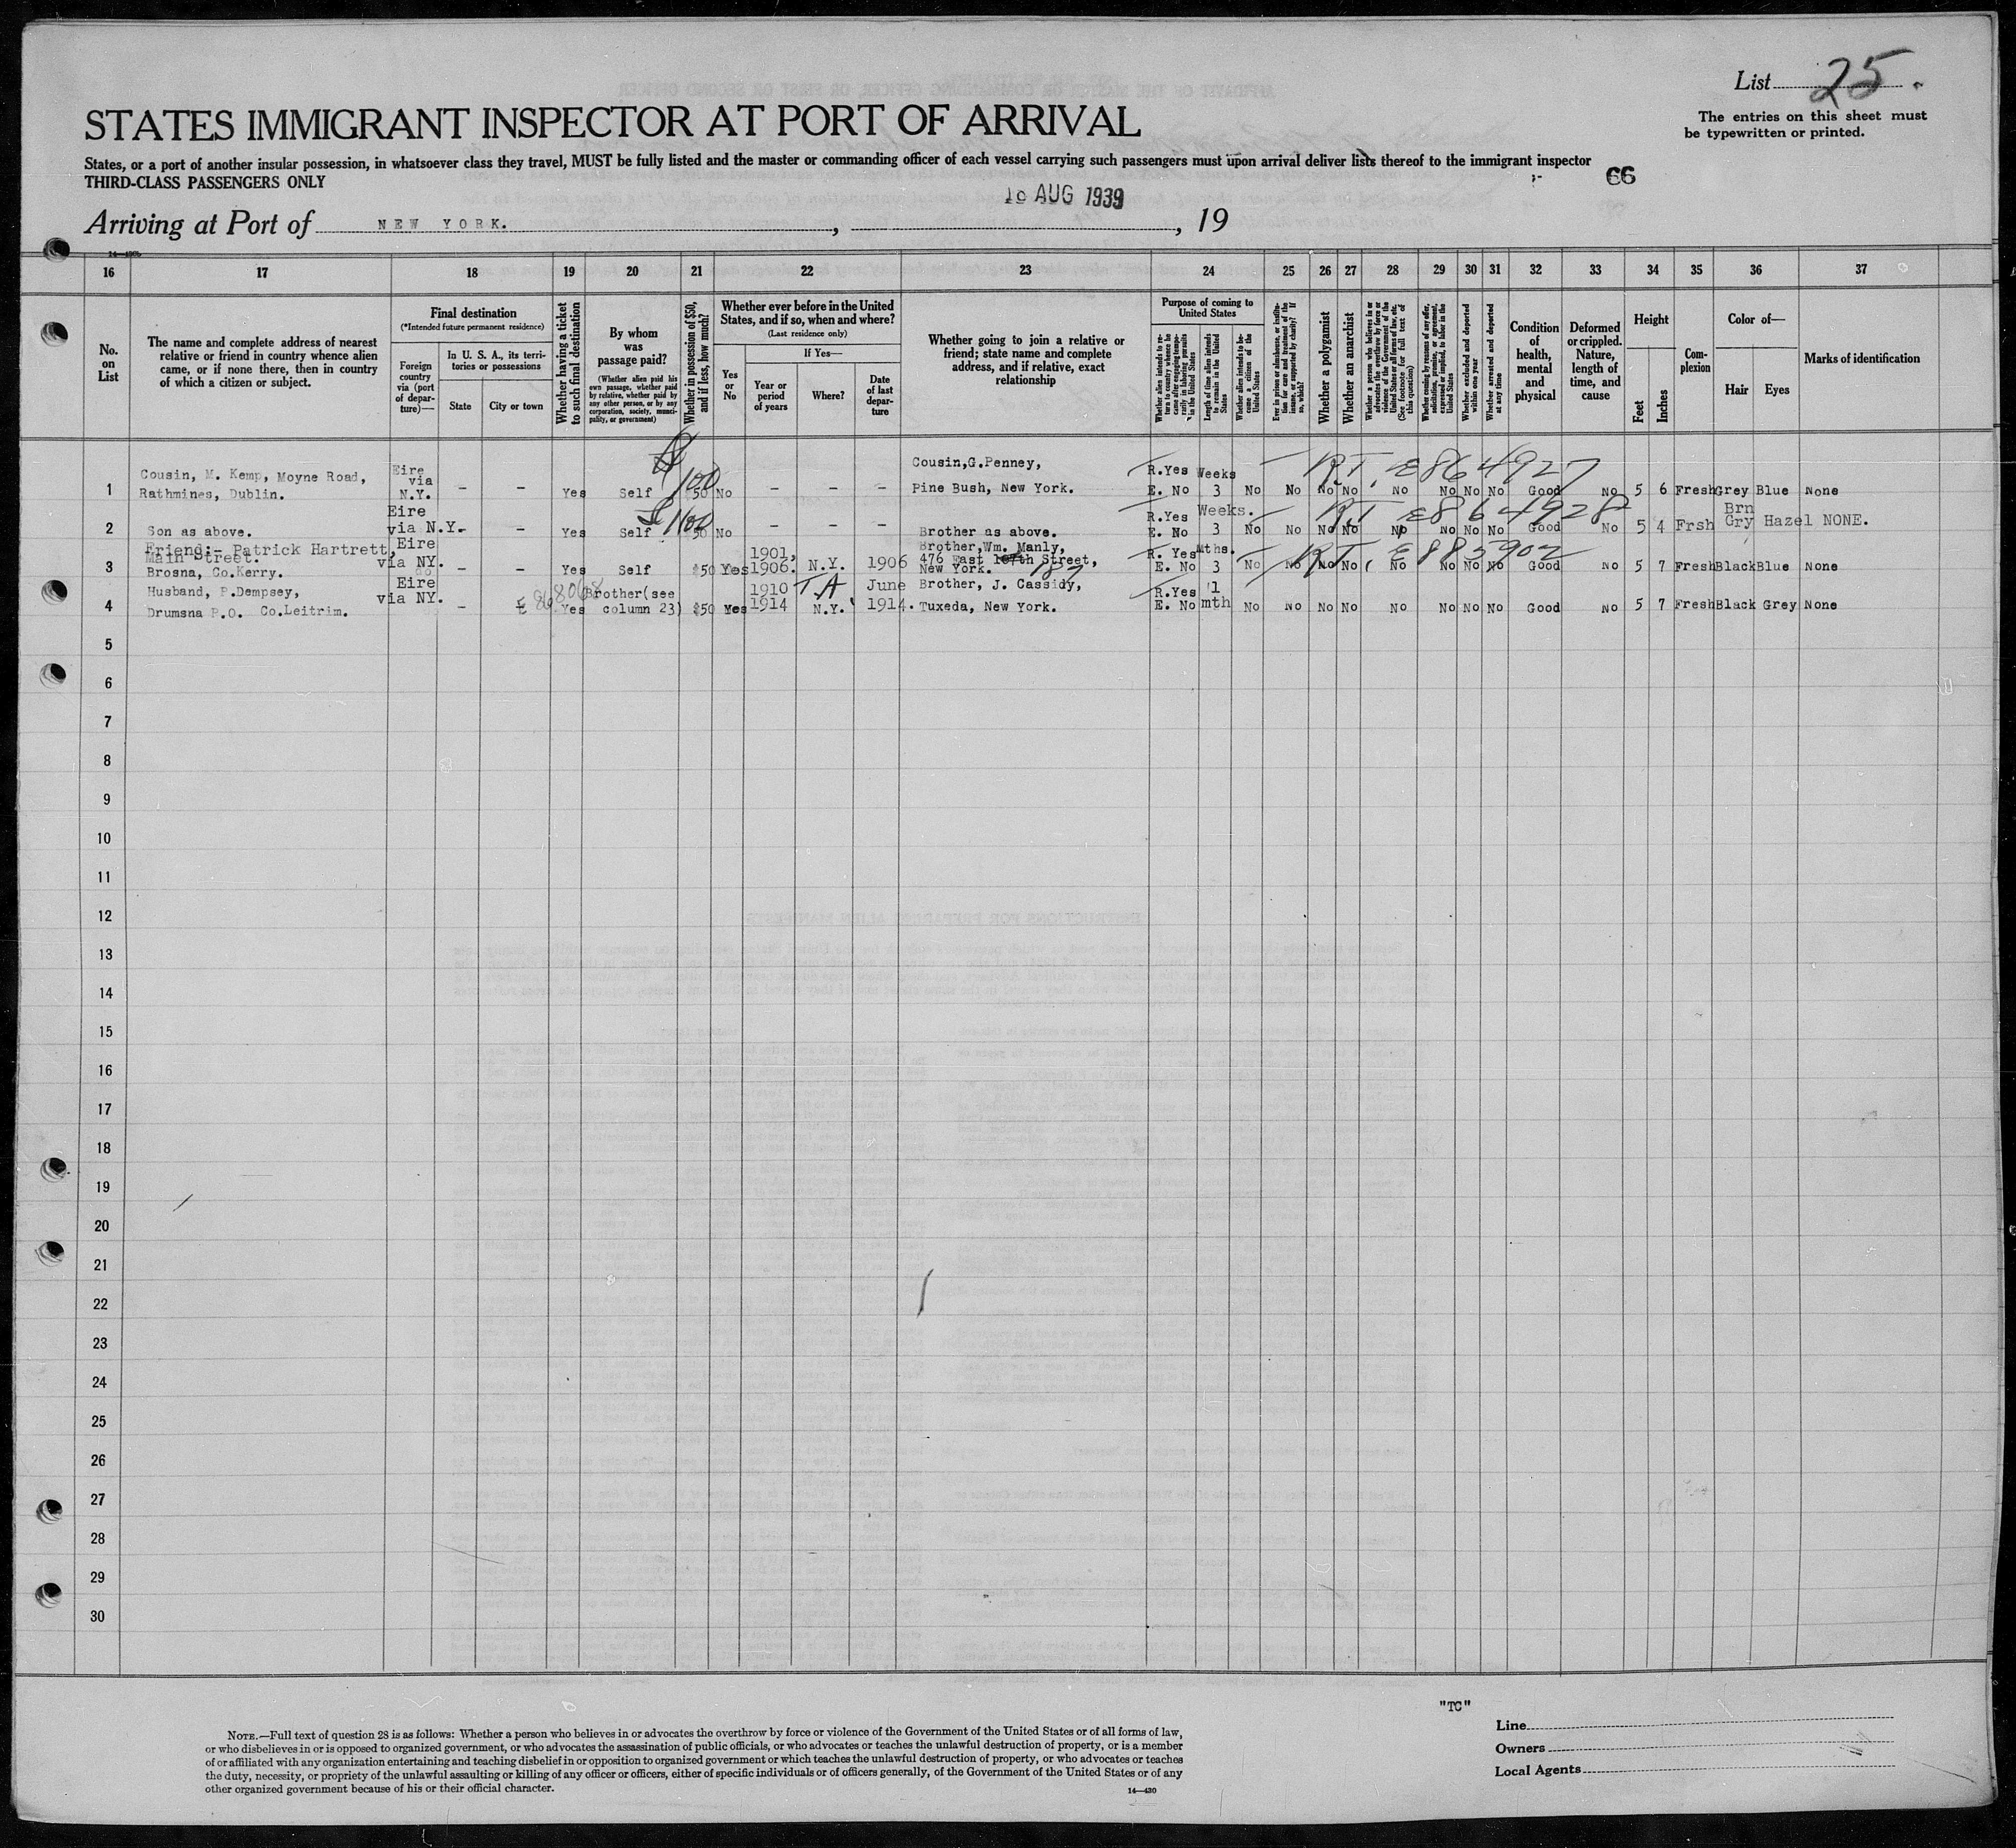 List 25.
The entries on this sheet must
be typewritten or printed.
STATES IMMIGRANT INSPECTOR AT PORT OF ARRIVAL
States, or a port of another insular possession, in whatsoever class they travel, MUST be fully listed and the master or commanding officer of each vessel carrying such passengers must upon arrival deliver lists thereof to the immigrant inspector
THIRD-CLASS PASSENGERS ONLY
66
AUG 1939
Arriving at Port of NEW YORK. , , 19
16 17 18 19 20 21 22 23 24 25 26 27 28 29 30 31 32 33 34 35 36 37
No. on List
The name and complete address of nearest relative or friend in country whence alien came, or if none there, then in country of which a citizen or subject.
Final destination
(*Intended future permanent residence)
Foreign country via (port of departure)—
In U. S. A., its territories or possessions
State
City or town
Whether having a ticket to such final destination
By whom was passage paid?
(Whether alien paid his own passage, whether paid by relative, whether paid by any other person, or by any corporation, society, municipality, or government)
Whether in possession of $50, and if less, how much?
Whether ever before in the United States, and if so, when and where?
(Last residence only)
Yes or No
If Yes—
Year or period of years
Where?
Date of last departure
Whether going to join a relative or friend; state name and complete address, and if relative, exact relationship
Purpose of coming to United States
Whether alien intends to return to country whence he came after engaging temporarily in laboring pursuits in the United States
Length of time alien intends to remain in the United States
Whether alien intends to become a citizen of the United States
Ever in prison or almshouse, or institution for care and treatment of the insane, or supported by charity? If so, which?
Whether a polygamist
Whether an anarchist
Whether a person who believes in or advocates the overthrow by force or violence of the Government of the United States or all forms of law, etc. (See footnote for full text of this question)
Whether coming by reasons of any offer, solicitation, promise, or agreement, expressed or implied, to labor in the United States
Whether excluded and deported within one year
Whether arrested and deported at any time
Condition of health, mental and physical
Deformed or crippled. Nature, length of time, and cause
Height
Feet
Inches
Complexion
Color of—
Hair
Eyes
Marks of identification
R.T. E864927
1 Cousin, M. Kemp, Moyne Road, Rathmines, Dublin. Eire via N.Y. – – Yes Self $100 50 No – – – Cousin,G.Penney, Pine Bush, New York. R.Yes E. No Weeks 3 No No No No No No No No Good No 5 6 Fresh Grey Blue None
R.T. E864928
2 Son as above. Eire via N.Y. – – Yes Self $100 50 No – – – Brother as above. R.Yes E. No Weeks. 3 No No No No No No No No Good No 5 4 Frsh Brn Gry Hazel NONE.
R.T. E885902
3 Friend:- Patrick Hartrett, Main Street. Brosna, Co.Kerry. Eire via NY. – – Yes Self $50 Yes 1901, 1906. N.Y. 1906 Brother,Wm. Manly, 476 East 187th Street, New York. R. Yes E. No Mths. 3 No No No No No No No No Good No 5 7 Fresh Black Blue None
4 Husband, P.Dempsey, Drumsna P.O. Co.Leitrim. Eire via NY. – – Yes Brother(see column 23) $50 Yes 1910 1914 T.A N.Y. June 1914. Brother, J. Cassidy, Tuxeda, New York. R.Yes E. No 1 mth No No No No No No No No Good No 5 7 Fresh Black Grey None
5
6
7
8
9
10
11
12
13
14
15
16
17
18
19
20
21
22
23
24
25
26
27
28
29
30
"TC"
NOTE.—Full text of question 28 is as follows: Whether a person who believes in or advocates the overthrow by force or violence of the Government of the United States or of all forms of law,
or who disbelieves in or is opposed to organized government, or who advocates the assassination of public officials, or who advocates or teaches the unlawful destruction of property, or is a member
of or affiliated with any organization entertaining and teaching disbelief in or opposition to organized government or which teaches the unlawful destruction of property, or who advocates or teaches
the duty, necessity, or propriety of the unlawful assaulting or killing of any officer or officers, either of specific individuals or of officers generally, of the Government of the United States or of any
other organized government because of his or their official character.
14—430
Line
Owners
Local Agents